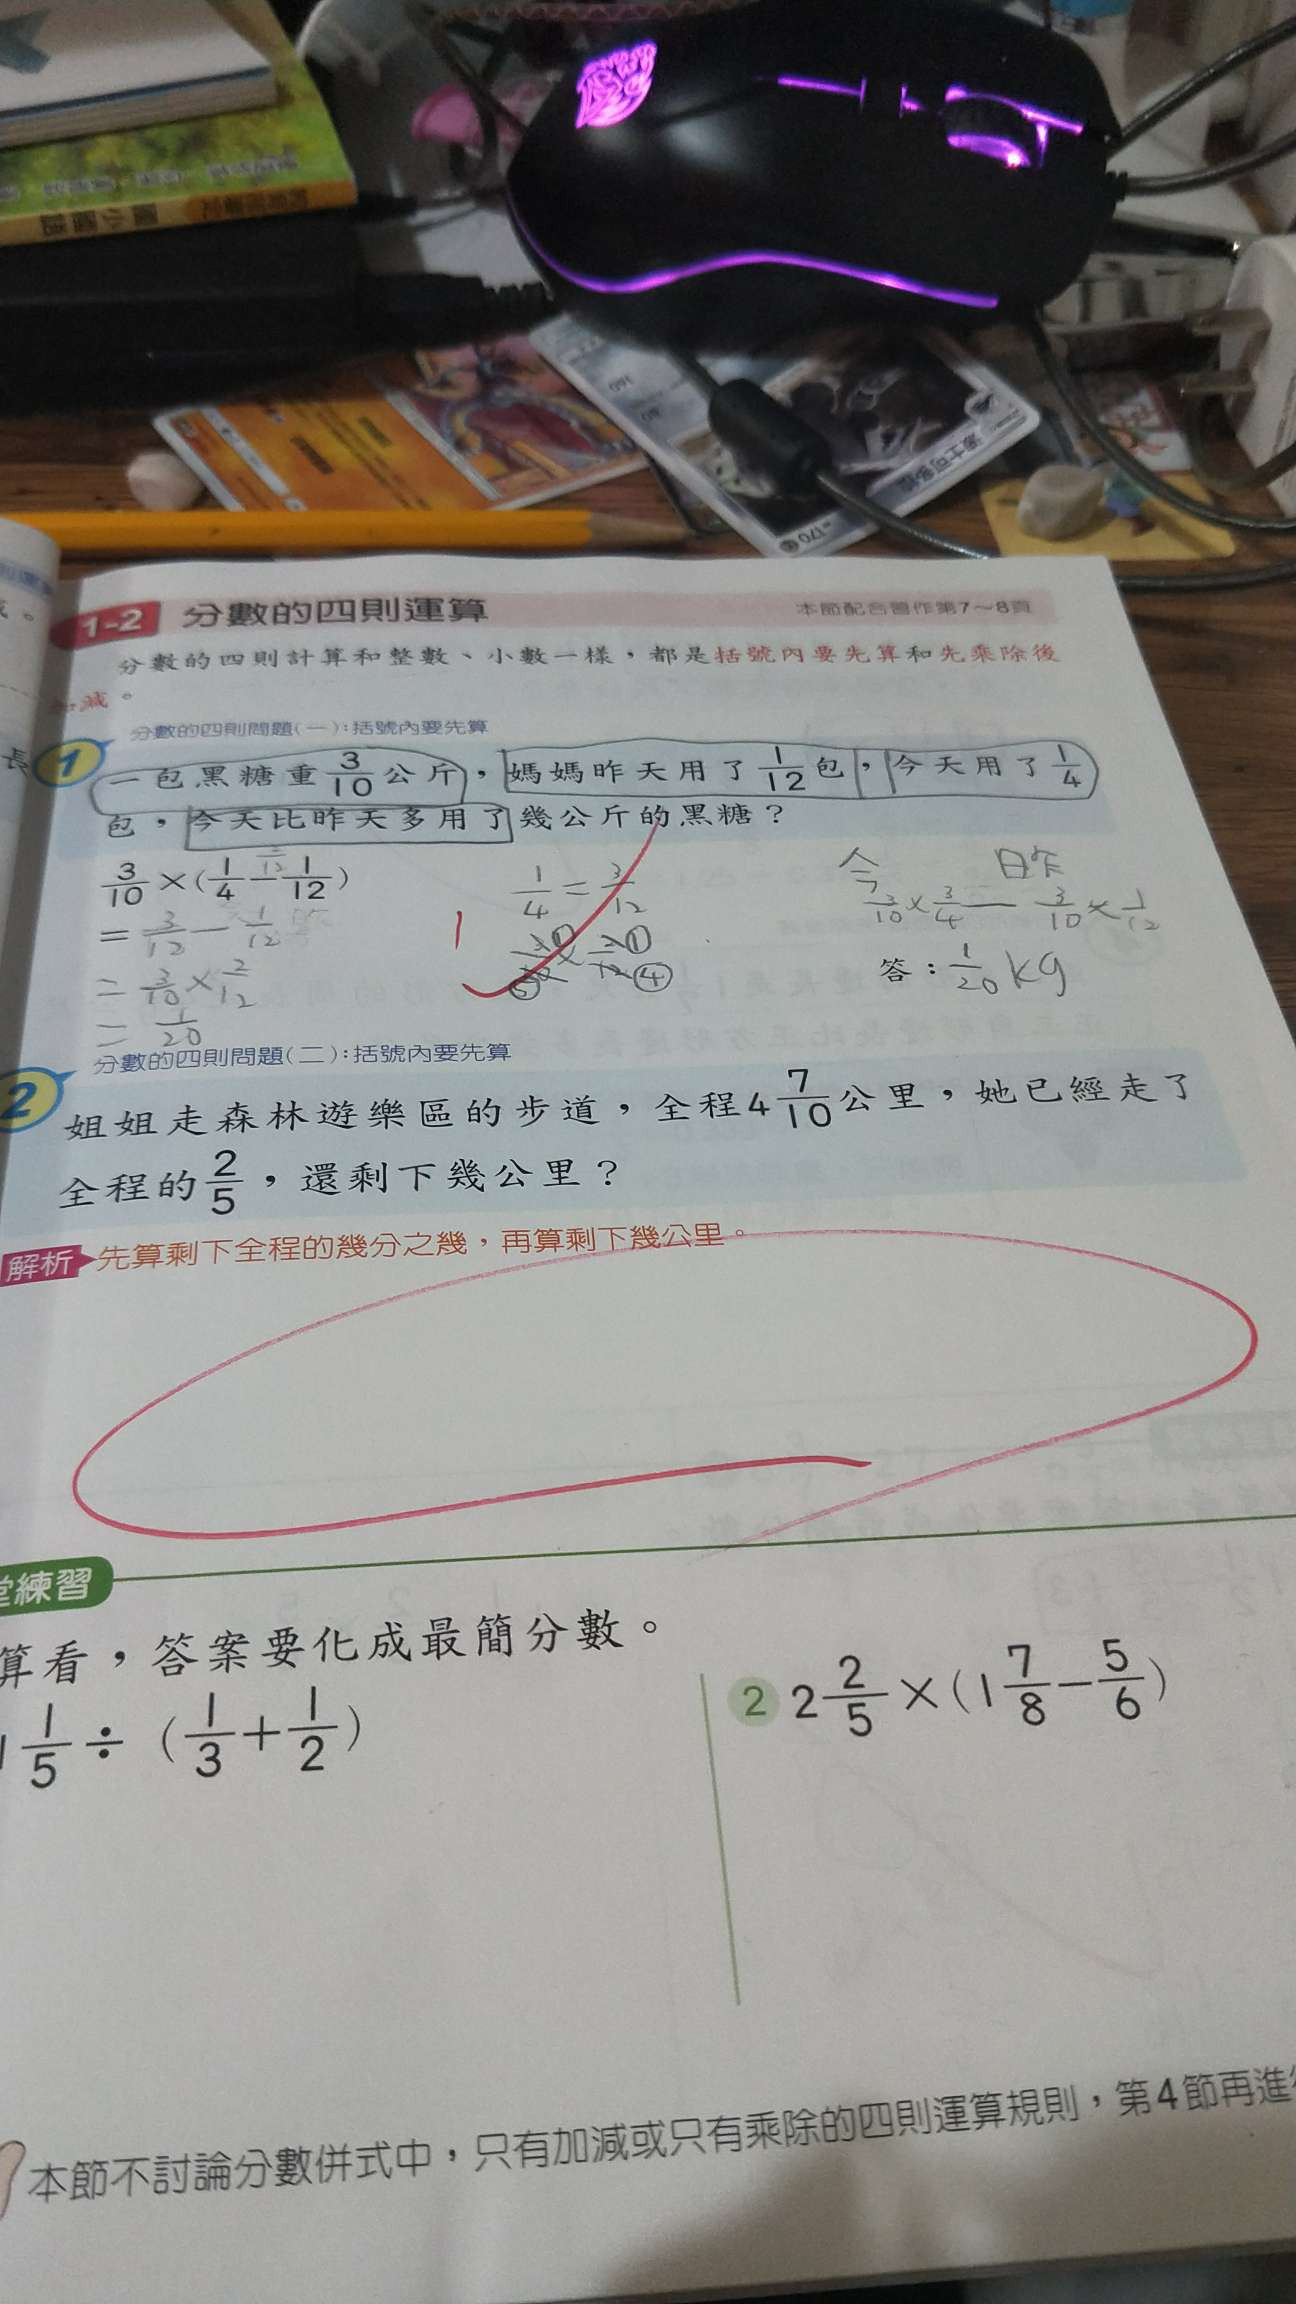 國小國語
1-2 分數的四則運算 本節配合習作第7~8頁
分數的四則計算和整數、小數一樣,都是括號內要先算和先乘除後
減。
分數的四則問題(一):括號內要先算
1 一包黑糖重3/10公斤,媽媽昨天用了1/12包,今天用了1/4
包,今天比昨天多用了幾公斤的黑糖?
3/10×(1/4-1/12)
=3/12-1/12
=3/10×2/12
=1/20
1
1/4=3/12
今 日昨
3/10×3/4-3/10×1/12
答:1/20kg
分數的四則問題(二):括號內要先算
2 姐姐走森林遊樂區的步道,全程4 7/10公里,她已經走了
全程的2/5,還剩下幾公里?
解析 先算剩下全程的幾分之幾,再算剩下幾公里。
堂練習
算看,答案要化成最簡分數。
1 1/5÷(1/3+1/2)
2 2 2/5×(1 7/8-5/6)
本節不討論分數併式中,只有加減或只有乘除的四則運算規則,第4節再進